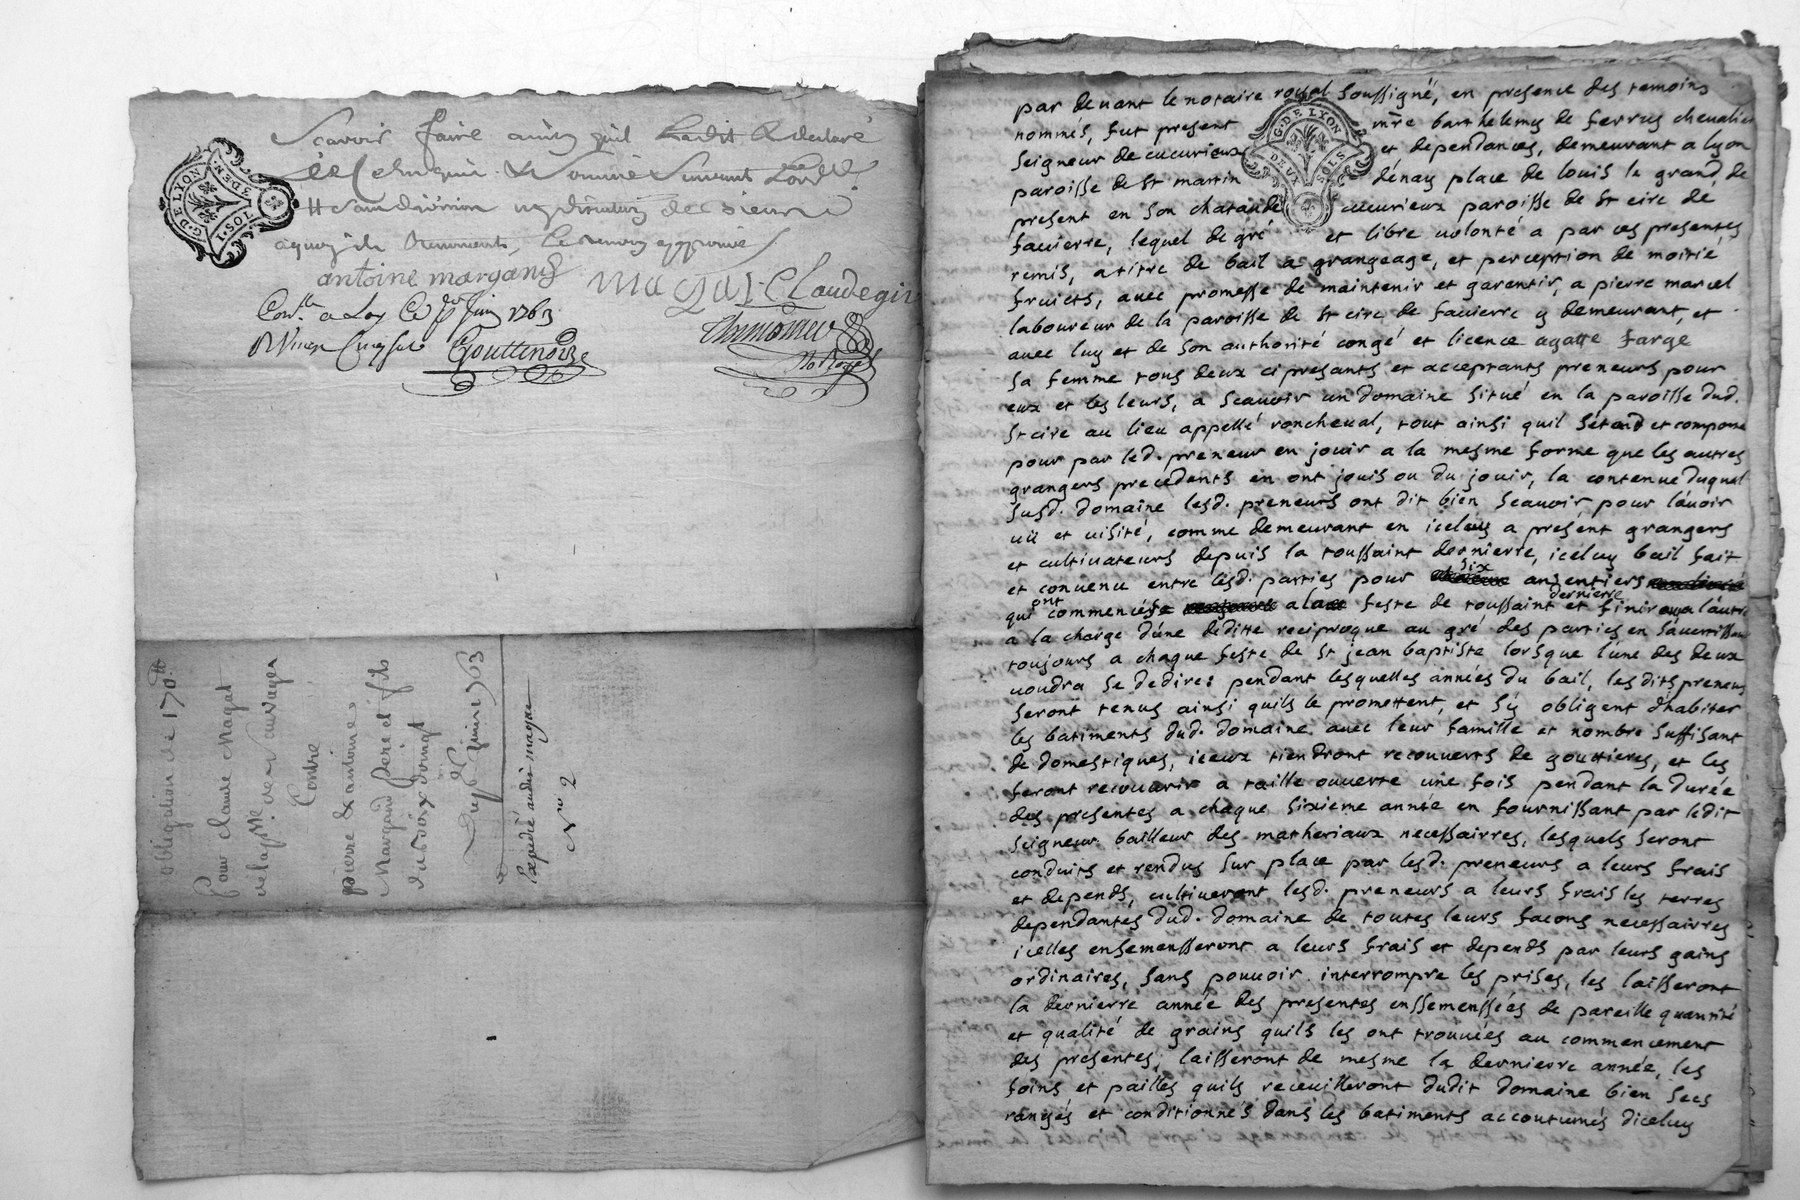 Scavoir faire
G. DE LYON
3 DEN
1 SOL
antoine margand magat Claude gir
Con.lle a Loy Ce Juin 1763
Gouttenoire
No. Roy.
obligation de 170.tt
Pour claude Magat
de la psse de
Contre
pierre & antoine
Margand pere et fils
du dix
juin 1763
Expedié audit magat
N.ro 2
par devant le notaire royal soussigné, en presence des temoins
nommés, fut present mre barthelemy de ferrus chevalier
seigneur de cucurieux et dependances, demeurant a lyon
paroisse de st martin dénay place de louis le grand, de
present en son chateau de cucurieux paroisse de st circ de
favierre, lequel de gré et libre volonté a par ces presentes
remis, a titre de bail a grangeage, et perception de moitié
fruicts, avec promesse de maintenir et garentir, a pierre marcel
laboureur de la paroisse de st circ de favierre y demeurant, et
avec luy et de son authorité congé et licence agatte farge
sa femme tous deux cipresants et acceptants preneurs pour
eux et les leurs, a scauoir un domaine situé en la paroisse dud.
st circ au lieu appellé roncheval, tout ainsi quil sétend et compose
pour par led. preneur en jouir a la mesme forme que les autres
grangers precedents en ont jouis ou du jouir, la contenue duquel
susd. domaine lesd. preneurs ont dit bien scauoir pour lávoir
vu et visité, comme demeurant en iceluy a présent grangers
et cultivateurs depuis la toussaint dernierre, iceluy bail fait
et convenu entre lesd. parties pour six ans entiers
qui ont commencés a la feste de toussaint dernierre et finir a láutre
a la charge dúne deditte reciproque au gré des parties en sávertissant
toujours a chaque feste de st jean baptiste lorsque lúne des deux
voudra se dedire: pendant lesquelles années du bail, les dits preneurs
seront tenus ainsi quils le promettent, et sý obligent dhabiter
les batiments dud. domaine avec leur famille et nombre suffisant
de domestiques, iceux tiendront recouverts de gouttieres, et les
feront recouvrir a taille ouverte une fois pendant la durée
des presentes a chaque sixieme année en fournissant par ledit
seigneur bailleur des matheriaux necessairres, lesquels seront
conduits et rendus sur place par lesd. preneurs a leurs frais
et depends, cultiveront lesd. preneurs a leurs frais les terres
dependantes dud. domaine de toutes leurs facons necessairres
icelles ensemensseront a leurs frais et depends par leurs gains
ordinaires, sans pouvoir interrompre les prises, les laisseront
la dernierre année des presentes enssemenssées de pareille quantité
et qualité de grains quils les ont trouvées au commencement
des présentes; laisseront de mesme la dernierre année, les
foins et pailles quils receuilleront dudit domaine bien secs
rangés et conditionnés dans les batiments accoutumés diceluy
G. DE LYON
DEUX SOLS